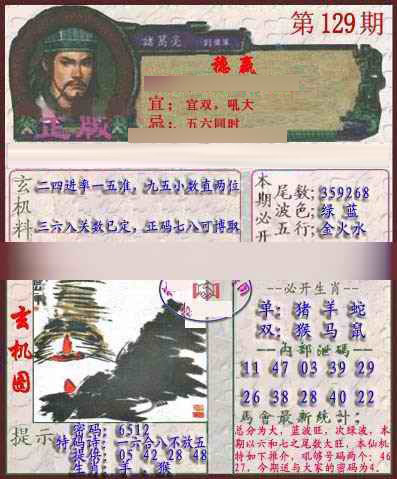 第129期
諸葛亮
劉伯溫
稳赢
宜：宜双，吼大
忌：五六同时
正版
玄机料
二四进率一五准，九五小数直两位
三六八关数已定，正码七八可博取
本期必开
尾数：359268
波色：绿 蓝
五行：金火水
玄机图
必开生肖
单：猪 羊 蛇
双：猴 马 鼠
内部泄码
11 47 03 39 29
26 38 28 40 22
馬會最新统计：
总分为大，蓝波旺，次绿波，本
期以六和七之尾数大旺，本仙机
特如下推介，吼够号码两个：46
27，今期送与大家的密码为4．
提示
密码：6512
特码诗：一六合八不放五
提供：05 42 28 48
生肖：羊、猴